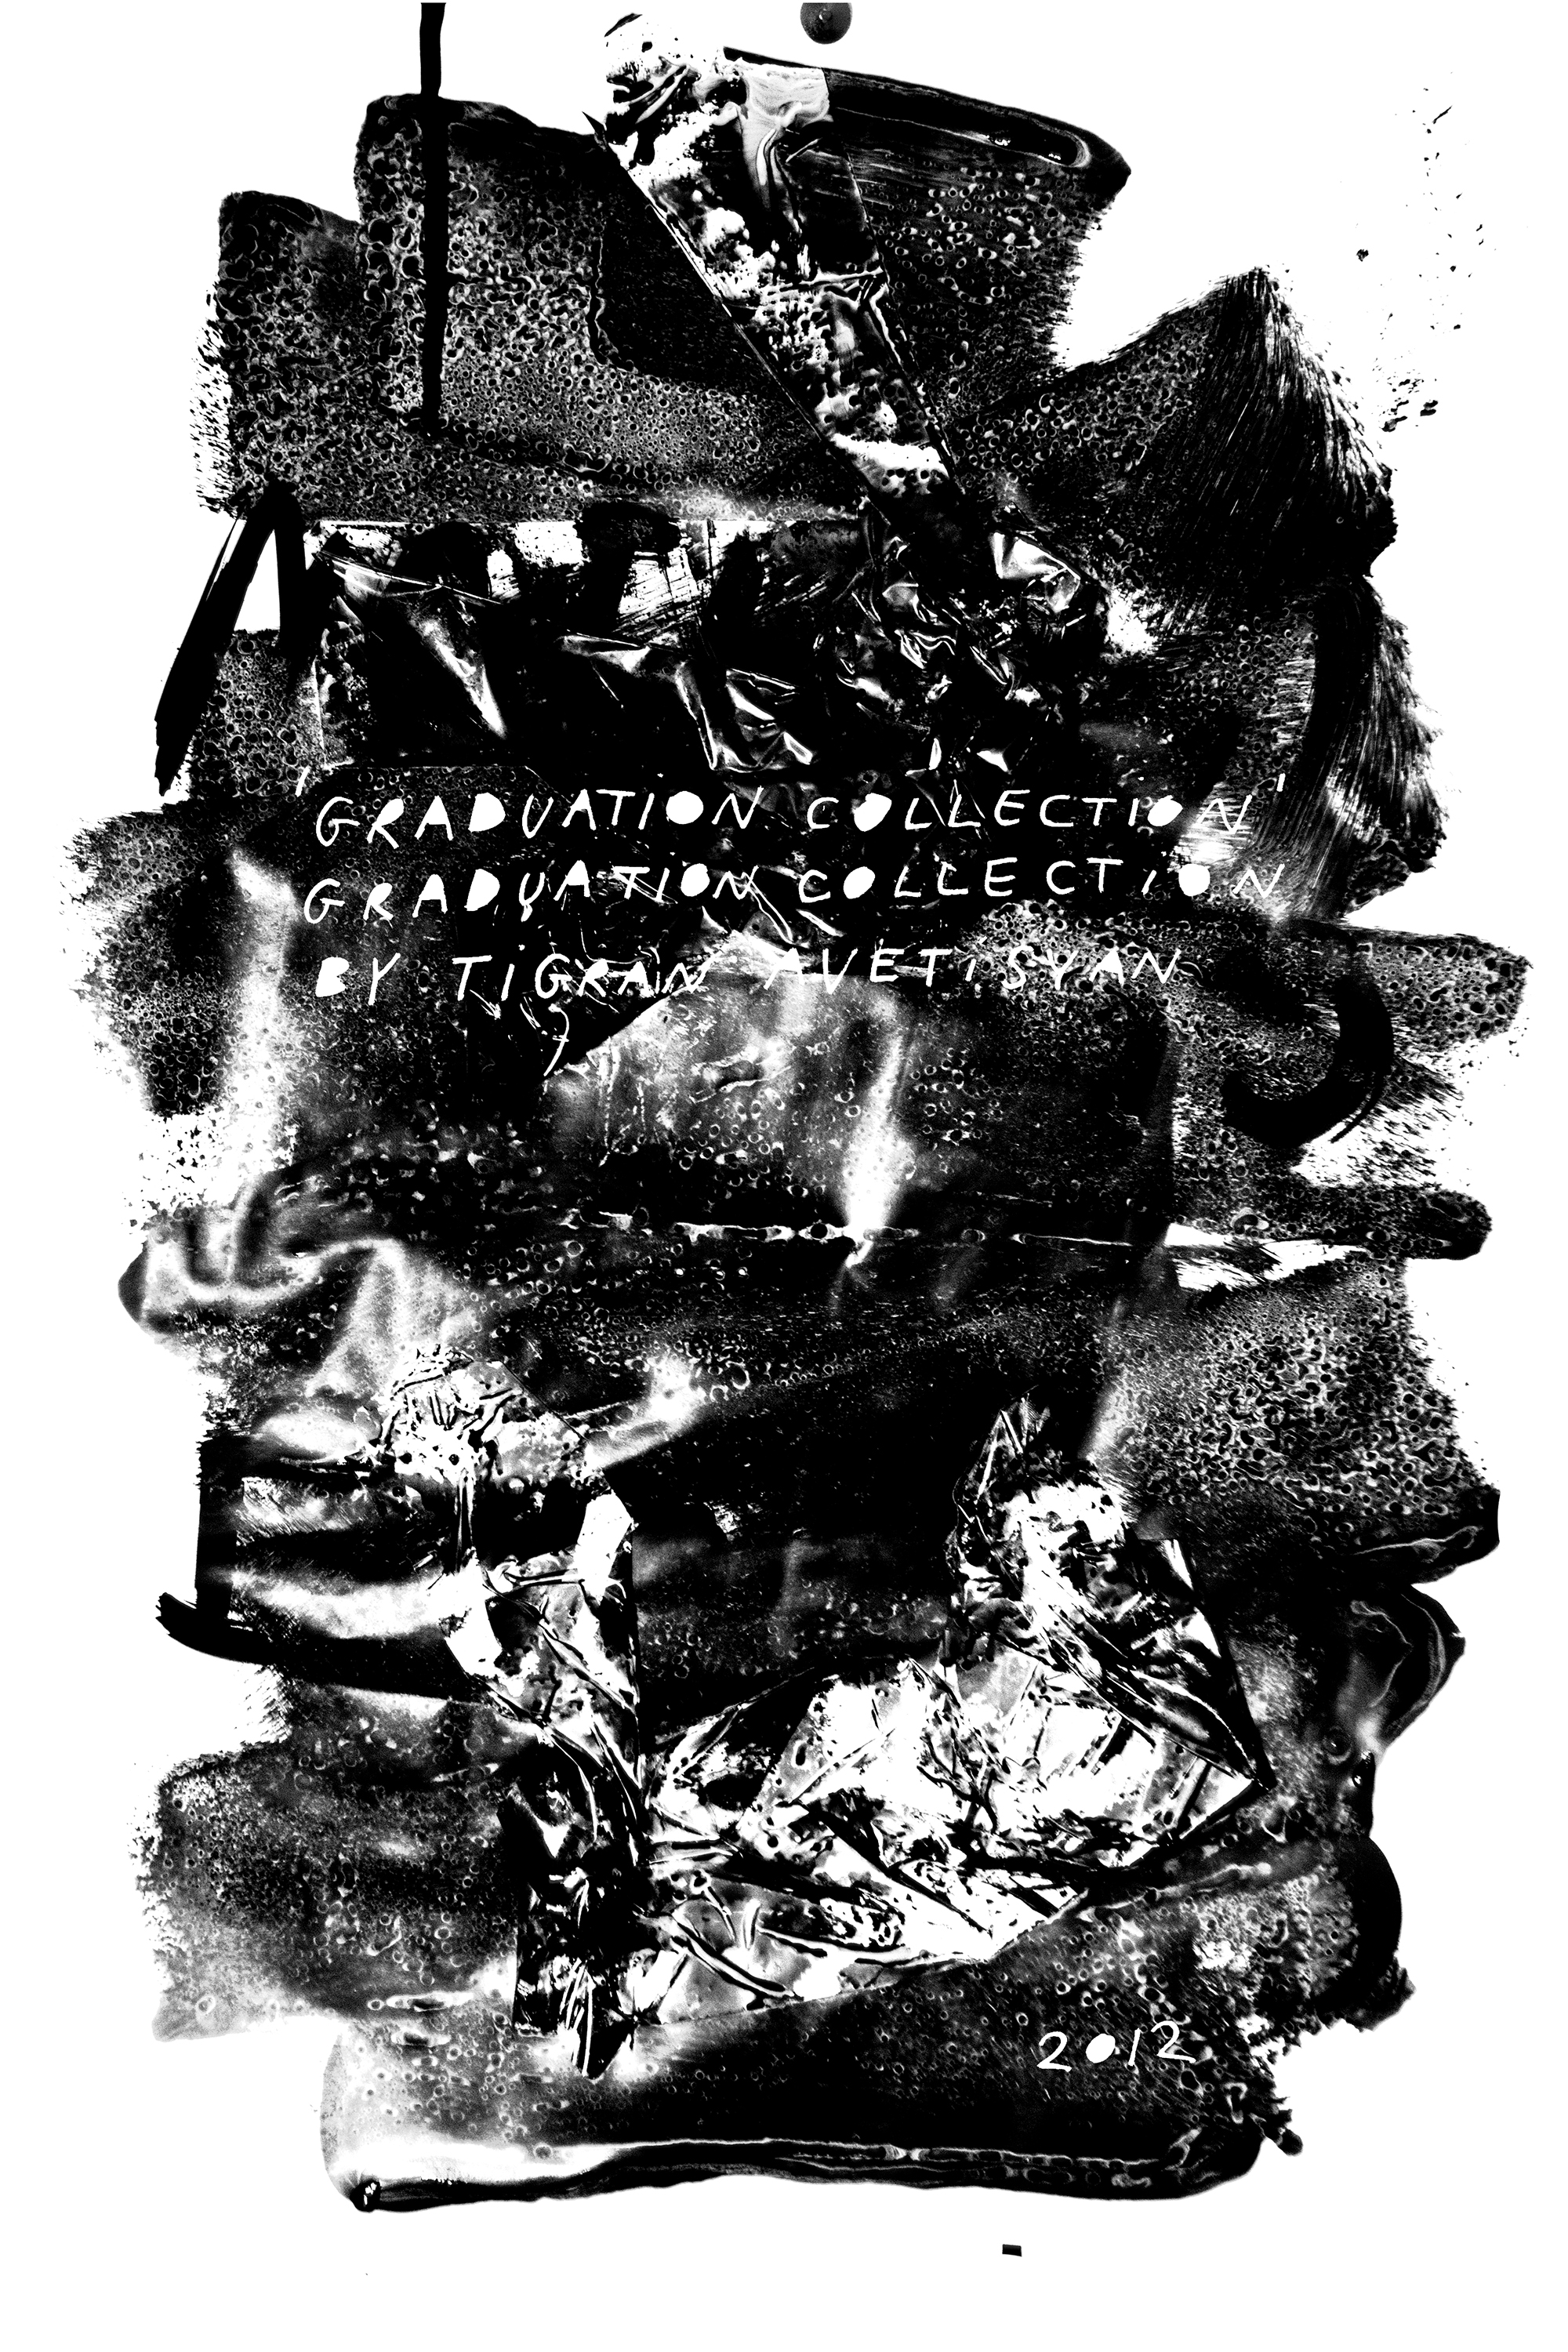 'GRADUATION COLLECTION'
GRADUATION COLLECTION
BY TIGRAN AVETISYAN
2012